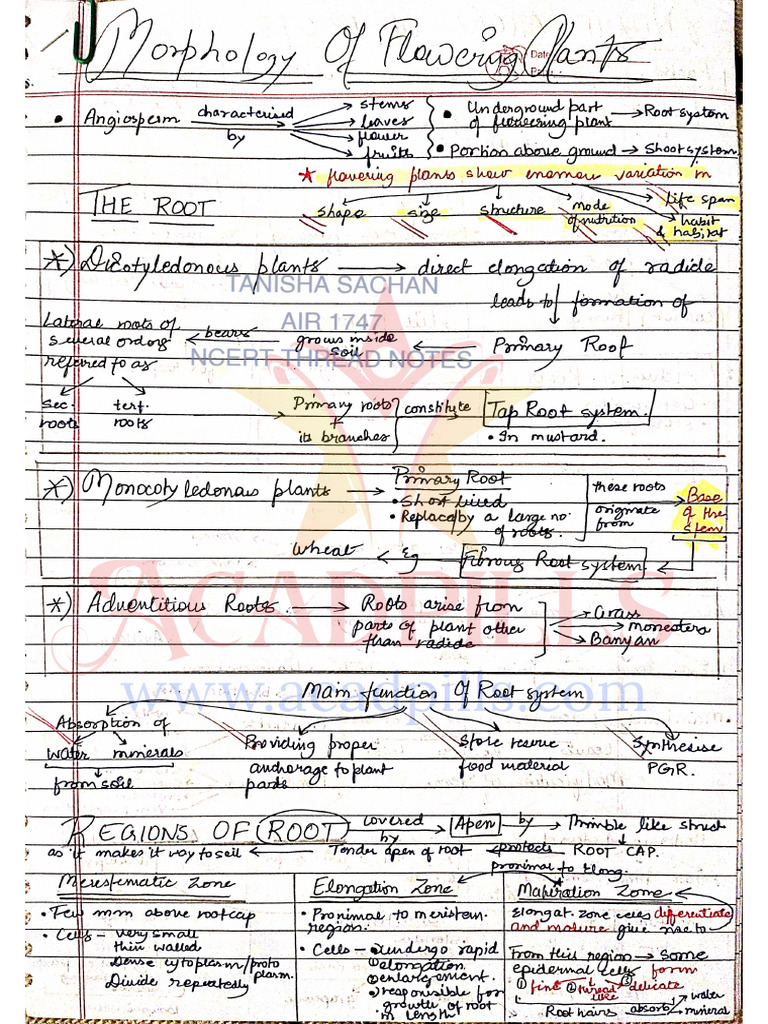 Morphology Of Flowering Plants
Date
• Angiosperm characterised by → stems leaves flower fruits
• Underground part of flowering plant → Root system
• Portion above ground → Shoot system
★ flowering plants show enormous variation in
shape size structure mode of nutrition life span habit & habitat
THE ROOT
*) Dicotyledonous plants → direct elongation of radicle
leads to formation of
Primary Root
grows inside soil
bears
Lateral roots of several orders referred to as
sec. roots tert. roots
Primary roots + its branches constitute Tap Root system.
• In mustard.
*) Monocotyledonous plants → Primary Root
• Short lived
• Replaced by a large no. of roots.
these roots originate from
Base of the stem
Fibrous Root system
Eg
Wheat
*) Adventitious Roots → Roots arise from parts of plant other than radicle
→ Grass
→ monstera
→ Banyan
TANISHA SACHAN
AIR 1747
NCERT THREAD NOTES
ACADPILLS
www.acadpills.com
Main function Of Root system
Absorption of water minerals from soil
Providing proper anchorage to plant parts
Store reserve food material
Synthesise PGR.
REGIONS OF ROOT covered by Apex by → Thimble like struct
ROOT CAP.
protects
Tender apex of root
as it makes it way to soil
proximal to Elong.
Meristematic Zone
• Few mm above rootcap
• Cells - very small
thin walled
Dense cytoplasm/protoplasm.
Divide repeatedly
Elongation Zone
• Proximal to meristem. region.
• Cells - undergo rapid
elongation
enlargement.
responsible for growth of root in length
Maturation Zone
Elongat. zone cells differentiate and mature give rise to
From this region → some epidermal cells form
① fine ② thread like ③ delicate
Root hairs absorb → water mineral